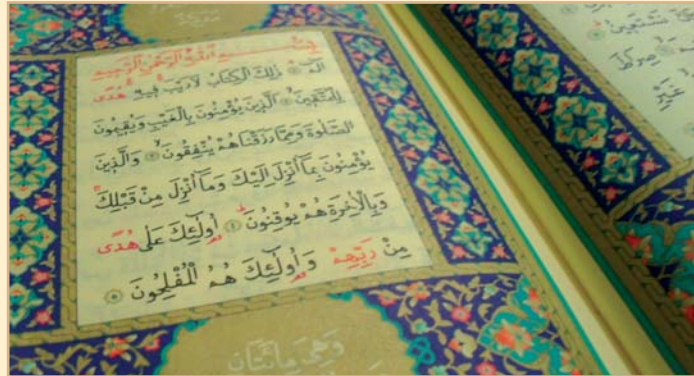 بِسْمِ اللّٰهِ الرَّحْمٰنِ الرَّحِيمِ
الٓمٓ ۝ ذٰلِكَ الْكِتَابُ لَا رَيْبَ فِيهِ هُدًى
لِلْمُتَّقِينَ ۝ اَلَّذِينَ يُؤْمِنُونَ بِالْغَيْبِ وَيُقِيمُونَ
الصَّلٰوةَ وَمِمَّا رَزَقْنَاهُمْ يُنْفِقُونَ ۝ وَالَّذِينَ
يُؤْمِنُونَ بِمَٓا اُنْزِلَ اِلَيْكَ وَمَٓا اُنْزِلَ مِنْ قَبْلِكَ
وَبِالْاٰخِرَةِ هُمْ يُوقِنُونَ ۝ اُولٰٓئِكَ عَلٰى هُدًى
مِنْ رَبِّهِمْ وَاُولٰٓئِكَ هُمُ الْمُفْلِحُونَ ۝
وَهِيَ مِائَتَانِ
نَسْتَعِينُ
صِرَاطَ
غَيْرِ